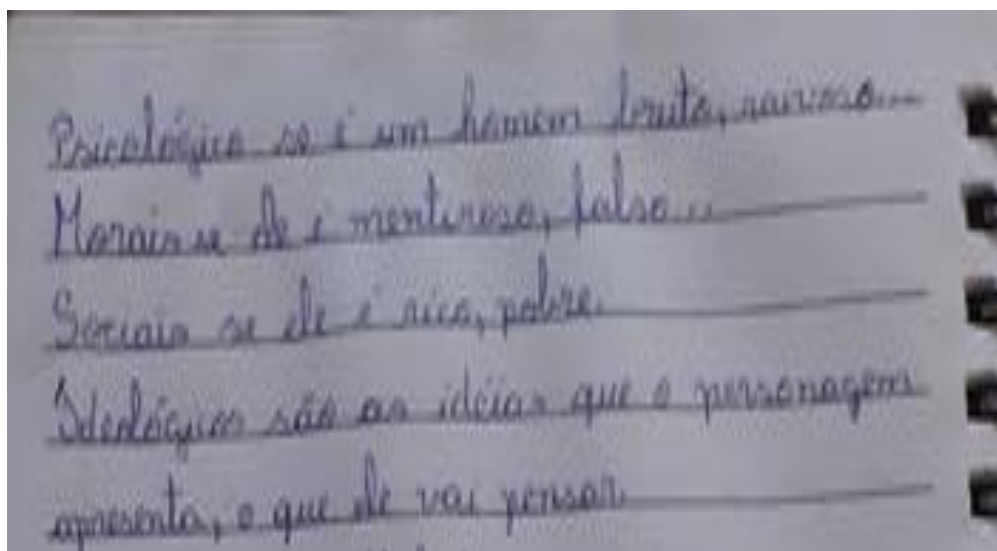 Psicológico se é um homem bruto, raivoso...
Morais se ele é mentiroso, falso...
Sociais se ele é rico, pobre.
Ideológicos são as idéias que o personagem
apresenta, o que ele vai pensar